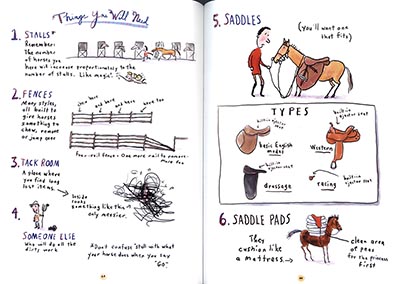 Things You Will Need
1. STALLS*
Remember:
the number of
horses you
have will increase proportionately to the
number of stalls. Like magic!
2. FENCES
Many styles,
all built to
give horses
something to
chew, remove
or jump over
four-rail fence = One more rail to remove =
more fun
3. TACK ROOM
A place where
you find long
lost items.
Inside
looks
something like this
only messier.
4.
SOMEONE ELSE
Who will do all the
dirty work
*Don't confuse 'stall' with what
your horse does when you say
"GO."
5. SADDLES
(You'll want one
that fits)
TYPES
built-in
ejector
seat
basic English
built-in
ejector seat
Western
built-in ejector seat
dressage
built-in
ejector seat
racing
6. SADDLE PADS
They
cushion like
a mattress.
clean area
of peas
for the princess
first